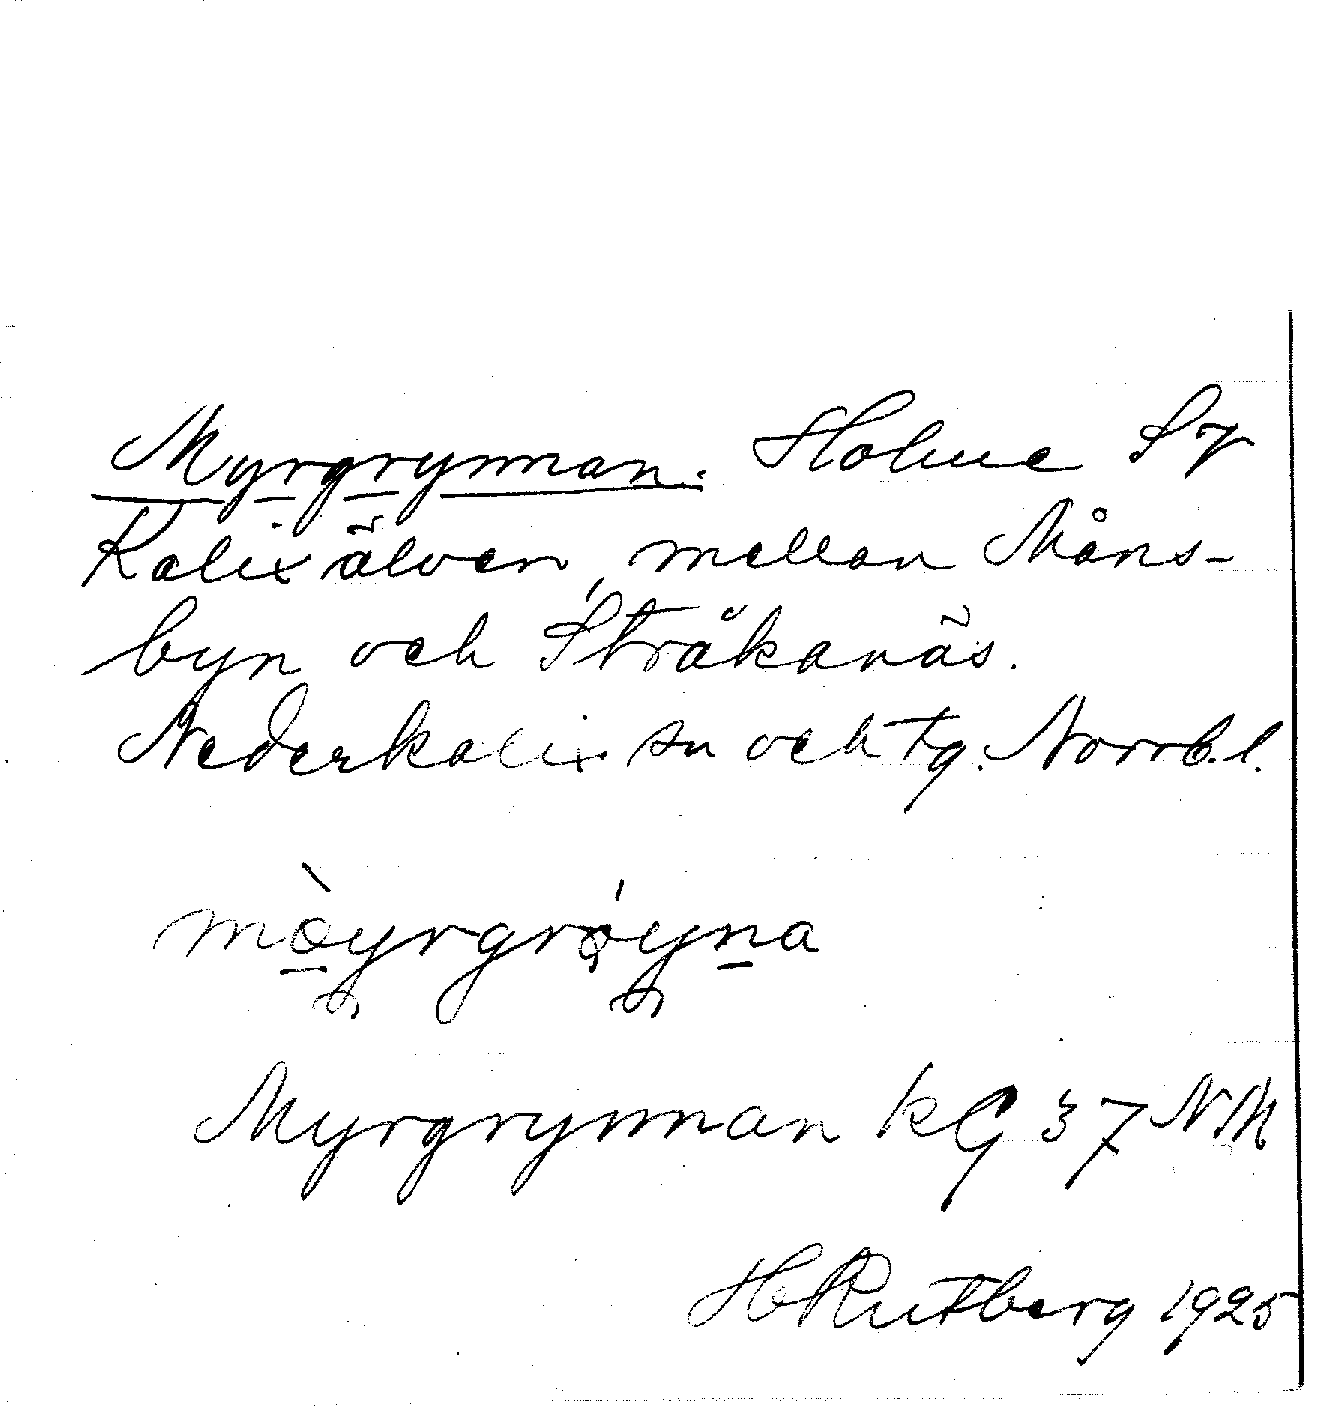 Myrgrynnan. Holme S V
Kalixälven, mellan Måns-
byn och Stråkanäs.
Nederkalix sn och tg. Norrb.l.
mòyrgrǿyna
Myrgrynnan kG 37 NM
H Rutberg 1925